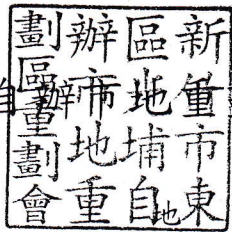 新市東
區地埔自
辦市地重
劃區重劃會